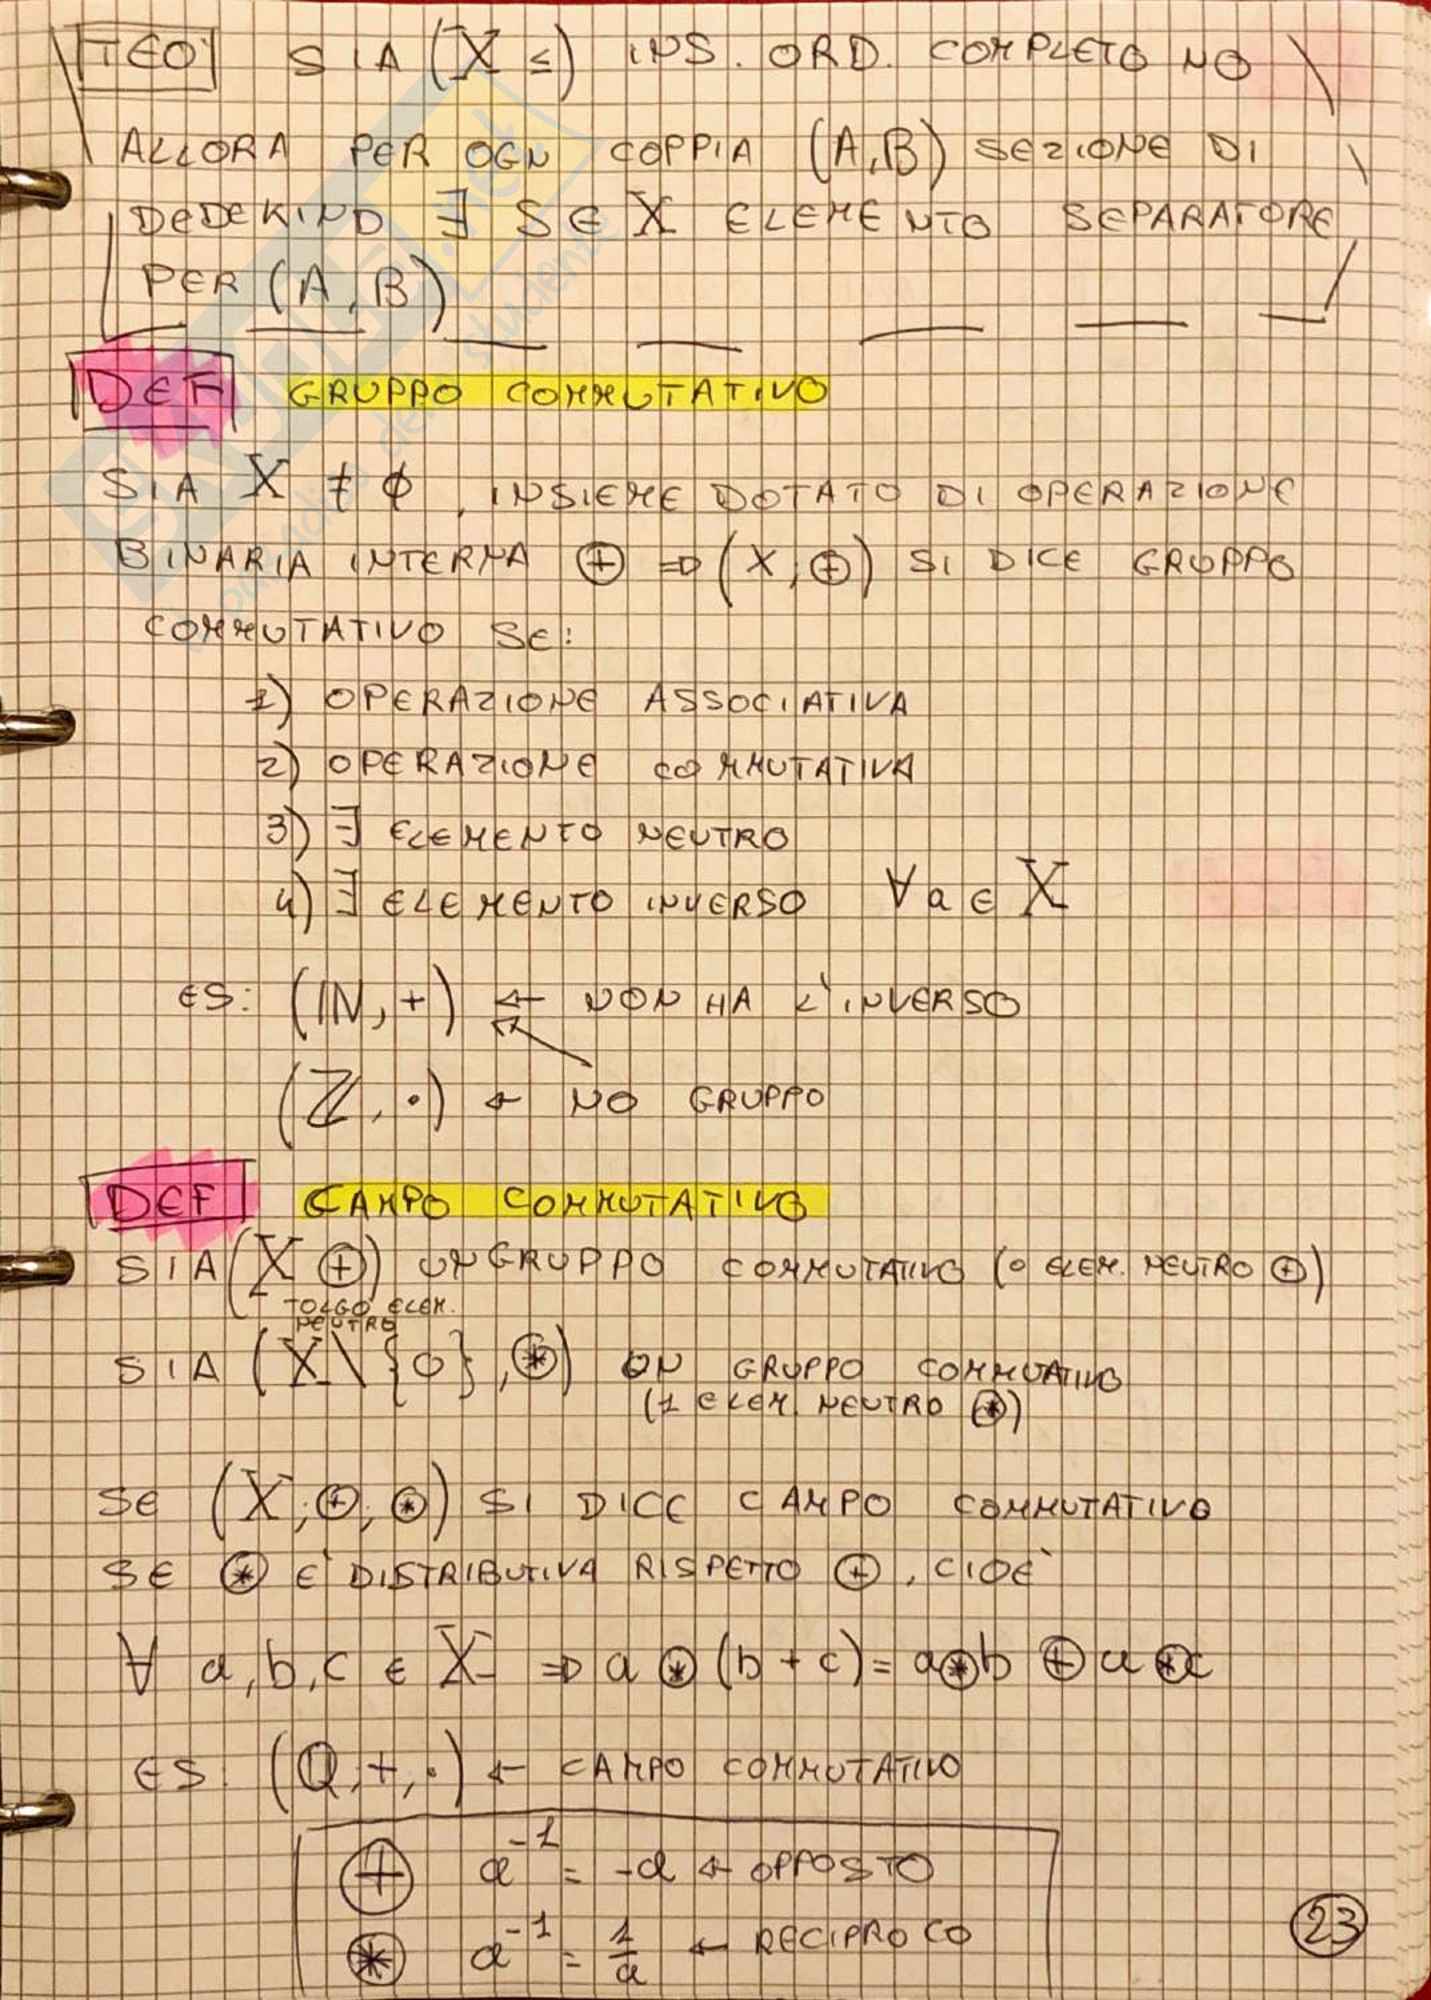 TEO: SIA (X ≤) INS. ORD. COMPLETO NO
ALLORA PER OGN COPPIA (A,B) SEZIONE DI
DEDEKIND ∃ S ∈ X ELEMENTO SEPARATORE
PER (A,B)
DEF GRUPPO COMMUTATIVO
SIA X ≠ ∅, INSIEME DOTATO DI OPERAZIONE
BINARIA INTERNA ⊕ ⇒ (X, ⊕) SI DICE GRUPPO
COMMUTATIVO SE:
1) OPERAZIONE ASSOCIATIVA
2) OPERAZIONE COMMUTATIVA
3) ∃ ELEMENTO NEUTRO
4) ∃ ELEMENTO INVERSO ∀ a ∈ X
ES: (ℕ, +) ← NON HA L'INVERSO
(ℤ, ·) ← NO GRUPPO
DEF CAMPO COMMUTATIVO
SIA (X ⊕) UN GRUPPO COMMUTATIVO (0 ELEM. NEUTRO ⊕)
TOLGO ELEM.
NEUTRO
SIA (X \ {0}, ⊛) UN GRUPPO COMMUTATIVO
(1 ELEM. NEUTRO ⊛)
SE (X, ⊕, ⊛) SI DICE CAMPO COMMUTATIVO
SE ⊛ E' DISTRIBUTIVA RISPETTO ⊕, CIOE'
∀ a,b,c ∈ X ⇒ a ⊛ (b + c) = a ⊛ b ⊕ a ⊛ c
ES. (Q, +, ·) ← CAMPO COMMUTATIVO
⊕ a⁻¹ = -a ← OPPOSTO
⊛ a⁻¹ = 1/a ← RECIPROCO
23